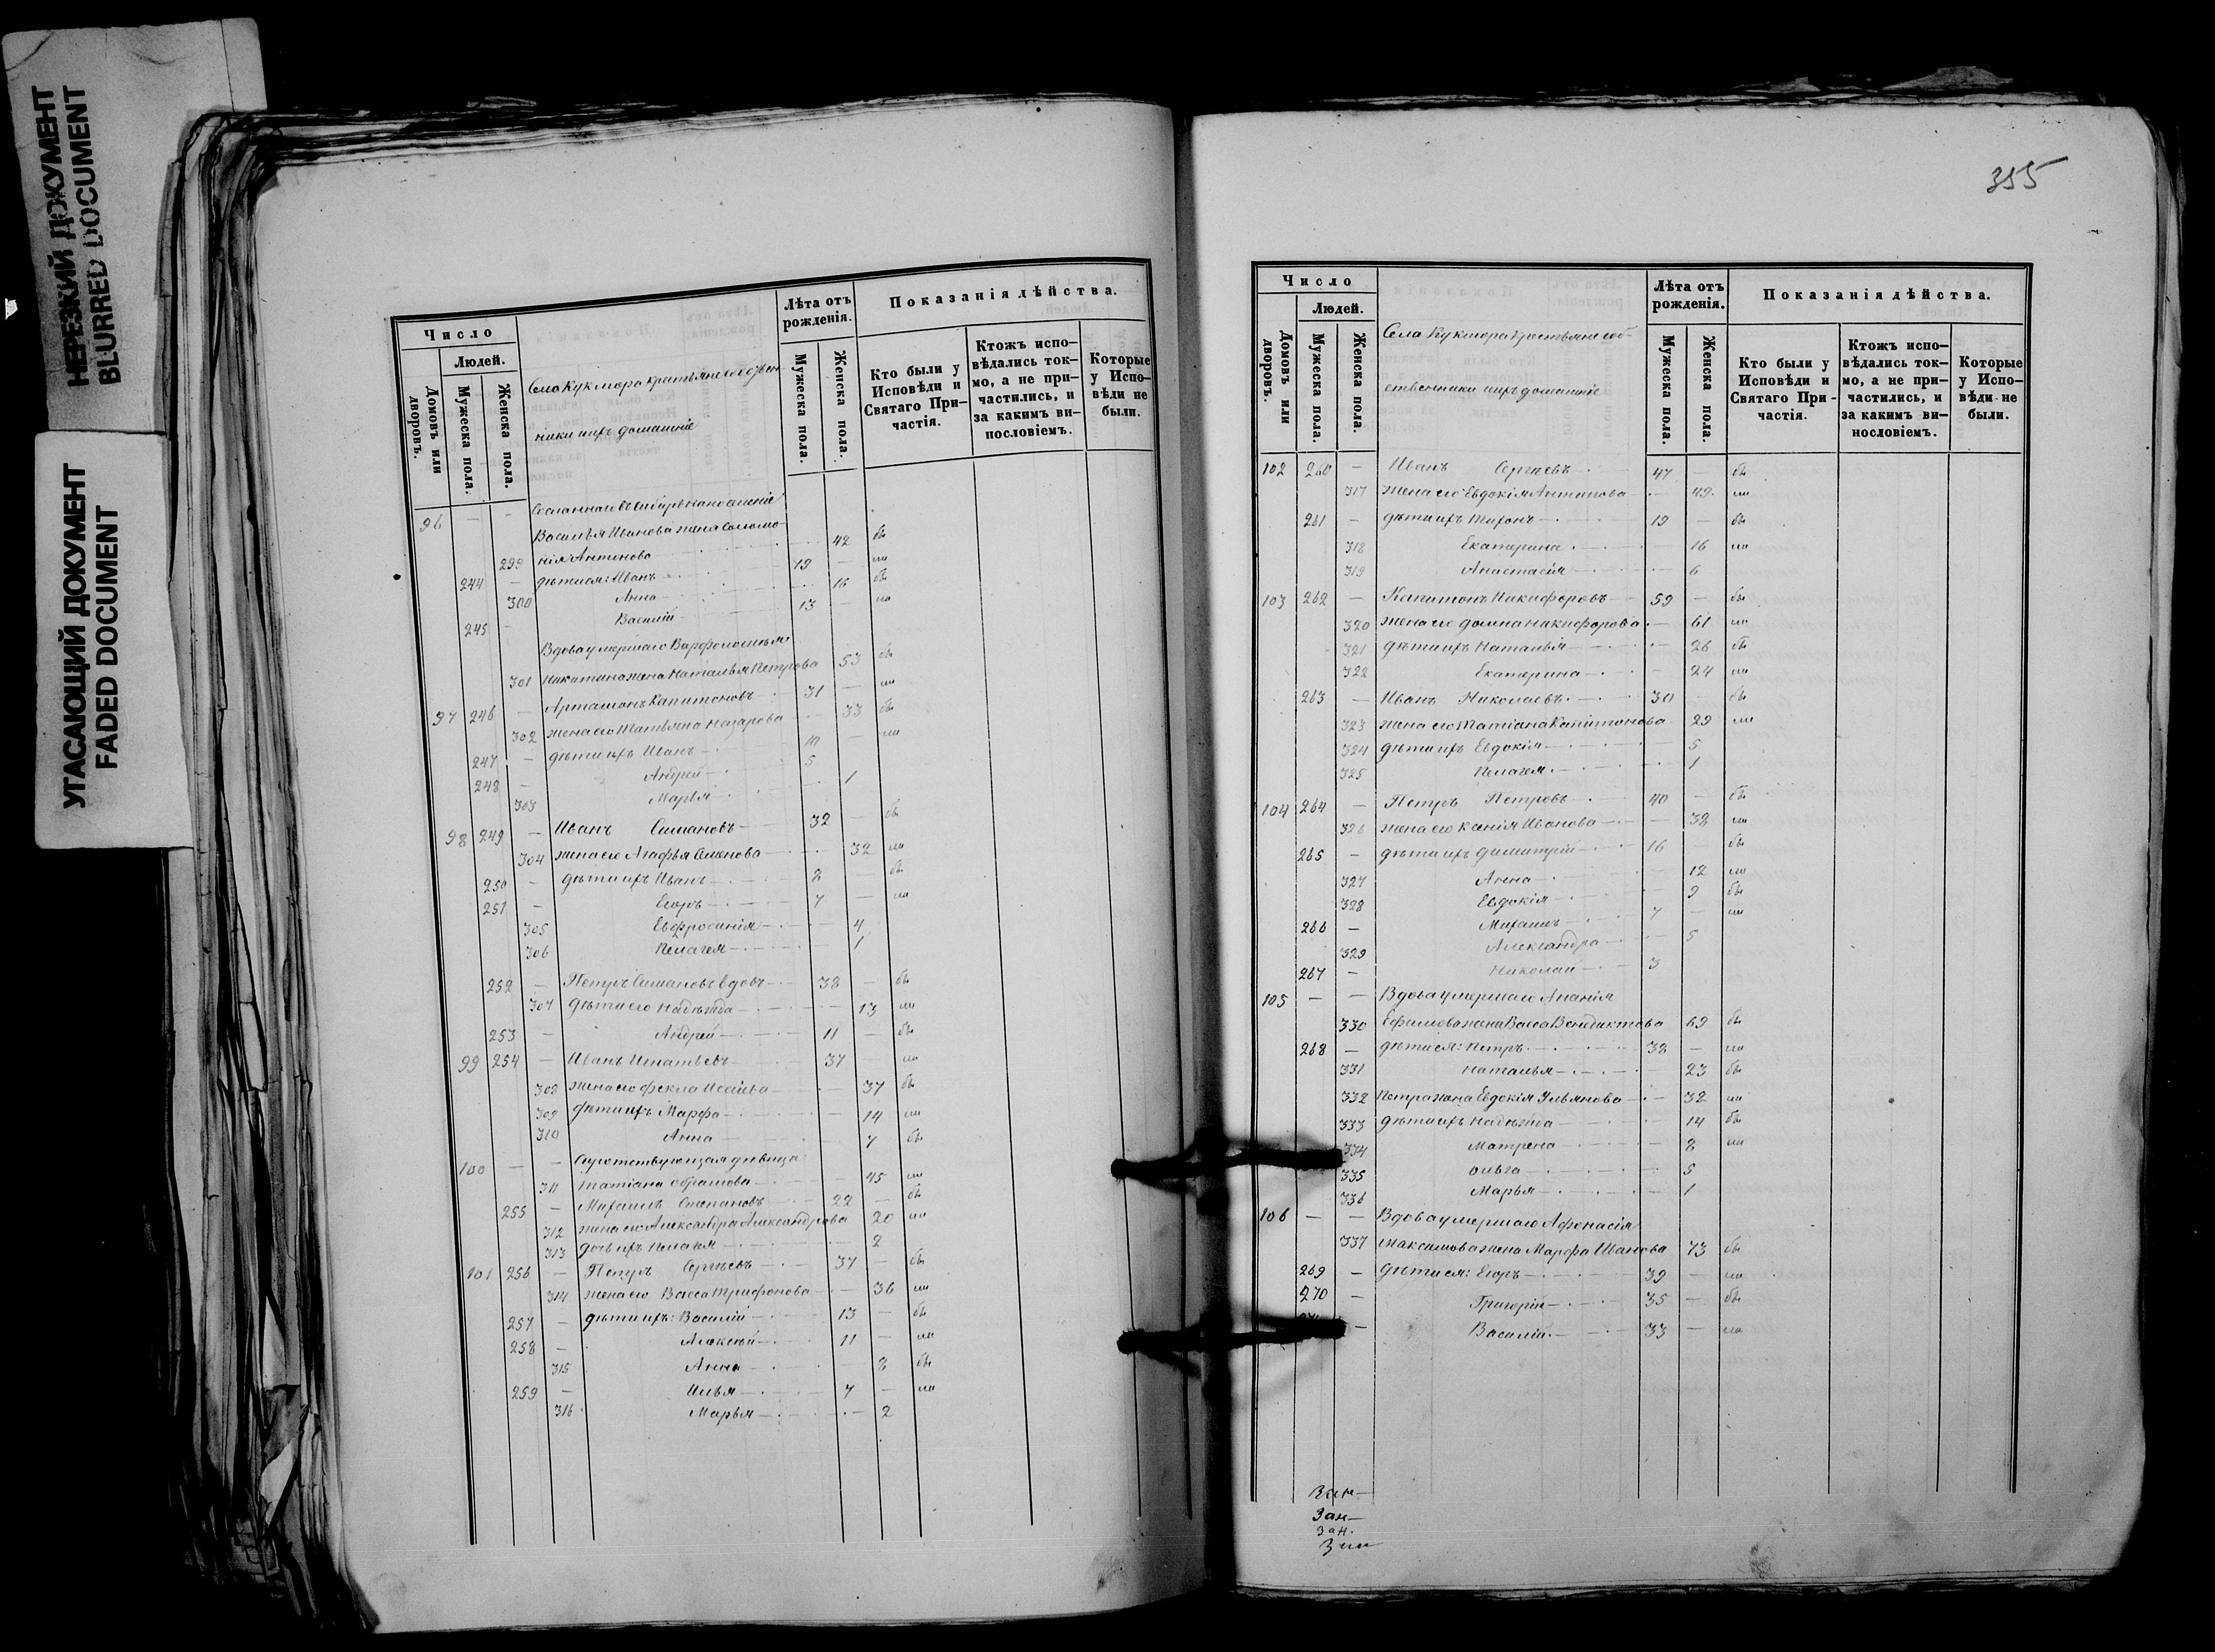 НЕРЕЗКИЙ ДОКУМЕНТ
BLURRED DOCUMENT
УГАСАЮЩИЙ ДОКУМЕНТ
FADED DOCUMENT
Число
Людей.
Домовъ или дворовъ.
Мужеска пола.
Женска пола.
Села Кукмора крестьяне собствен-
ники и ихъ домашніе
Лѣта отъ рожденія.
Мужеска пола.
Женска пола.
Показанія дѣйства.
Кто были у Исповѣди и Святаго При-
частія.
Ктожъ испо-
вѣдались ток-
мо, а не при-
частились, и
за какимъ ви-
нословіемъ.
Которые у Испо-
вѣди не были.
96 — — Сосланнаго въ Сибирь на поселеніе
Василья Иванова жена Соломо-
299 нія Антонова 42 бы
244 — дѣти ея: Иванъ 19 — ли
300 Анна 16 бы
245 — Василій 13 ли
Вдова умершаго Варфоломея
301 Никитина жена Наталья Петрова 53 бы
97 246 — Артамонъ Капитоновъ 31 — ли
302 жена его Татьяна Назарова 33 бы
247 — дѣти ихъ Иванъ — ли
248 — Андрей 5
303 Марья 1
98 249 — Иванъ Симановъ 32 — бы
304 жена его Агафья Семенова 32 ли
250 — дѣти ихъ Иванъ 8 — бы
251 — Егоръ 7 — ли
305 Евфросинія 4
306 Пелагея 1
252 — Петръ Симановъ вдовъ 38 — бы
307 дѣти его Надѣжда 13 ли
253 — Андрей 11 — бы
99 254 — Иванъ Игнатьевъ 37 ли
308 жена его Фекла Исаева 37 бы
309 дѣти ихъ Марфа 14 ли
310 Анна 7 бы
100 — — Сиротствующая дѣвица
311 Татіана Абрамова 45 ли
255 — Михаилъ Степановъ 22 — бы
312 жена его Александра Александрова 20 ли
313 дочь ихъ Пелагея 2
101 256 — Петръ Сергѣевъ 37 — бы
314 жена его Васса Трифонова 36 ли
257 — дѣти ихъ: Василій 13 — бы
258 — Алексѣй 11 — ли
315 Анна 8 бы
259 — Илья 7 — ли
316 Марья 2
355
Число
Людей.
Домовъ или дворовъ.
Мужеска пола.
Женска пола.
Села Кукмора крестьяне соб-
ственники и ихъ домашніе
Лѣта отъ рожденія.
Мужеска пола.
Женска пола.
Показанія дѣйства.
Кто были у Исповѣди и Святаго При-
частія.
Ктожъ испо-
вѣдались ток-
мо, а не при-
частились, и
за какимъ ви-
нословіемъ.
Которые у Испо-
вѣди не были.
102 260 — Иванъ Сергѣевъ 47 — бы
317 жена его Евдокія Антипова 49 ли
261 — дѣти ихъ Тихонъ 19 — бы
318 Екатерина 16 ли
319 Анастасія 6
103 262 — Капитонъ Никифоровъ 59 — бы
320 жена его Домна Никифорова 61 ли
321 дѣти ихъ Наталья 26 бы
322 Екатерина 24 ли
263 — Иванъ Николаевъ 30 — бы
323 жена его Татіана Капитонова 29 ли
324 дѣти ихъ Евдокія 5
325 Пелагея 1
104 264 — Петръ Петровъ 40 — бы
326 жена его Ксенія Иванова 38 ли
265 — дѣти ихъ Димитрій 16 — бы
327 Анна 12 ли
328 Евдокія 9 бы
266 — Михаилъ 7 — ли
329 Александра 5
267 — Николай 3
105 — — Вдова умершаго Ананія
330 Ефимова жена Васса Венедиктова 69 бы
268 — дѣти ея: Петръ 38 — ли
331 Наталья 23 бы
332 Петра жена Евдокія Ульянова 32 ли
333 дѣти ихъ Надѣжда 14 бы
334 Матрена 8 ли
335 Ольга 5
336 Марья 1
106 — — Вдова умершаго Афонасія
337 Максимова жена Марфа Иванова 73 бы
269 — дѣти ея: Егоръ 39 — ли
270 — Григорій 35 — бы
— Василій 33 — ли
Зан
Зан.